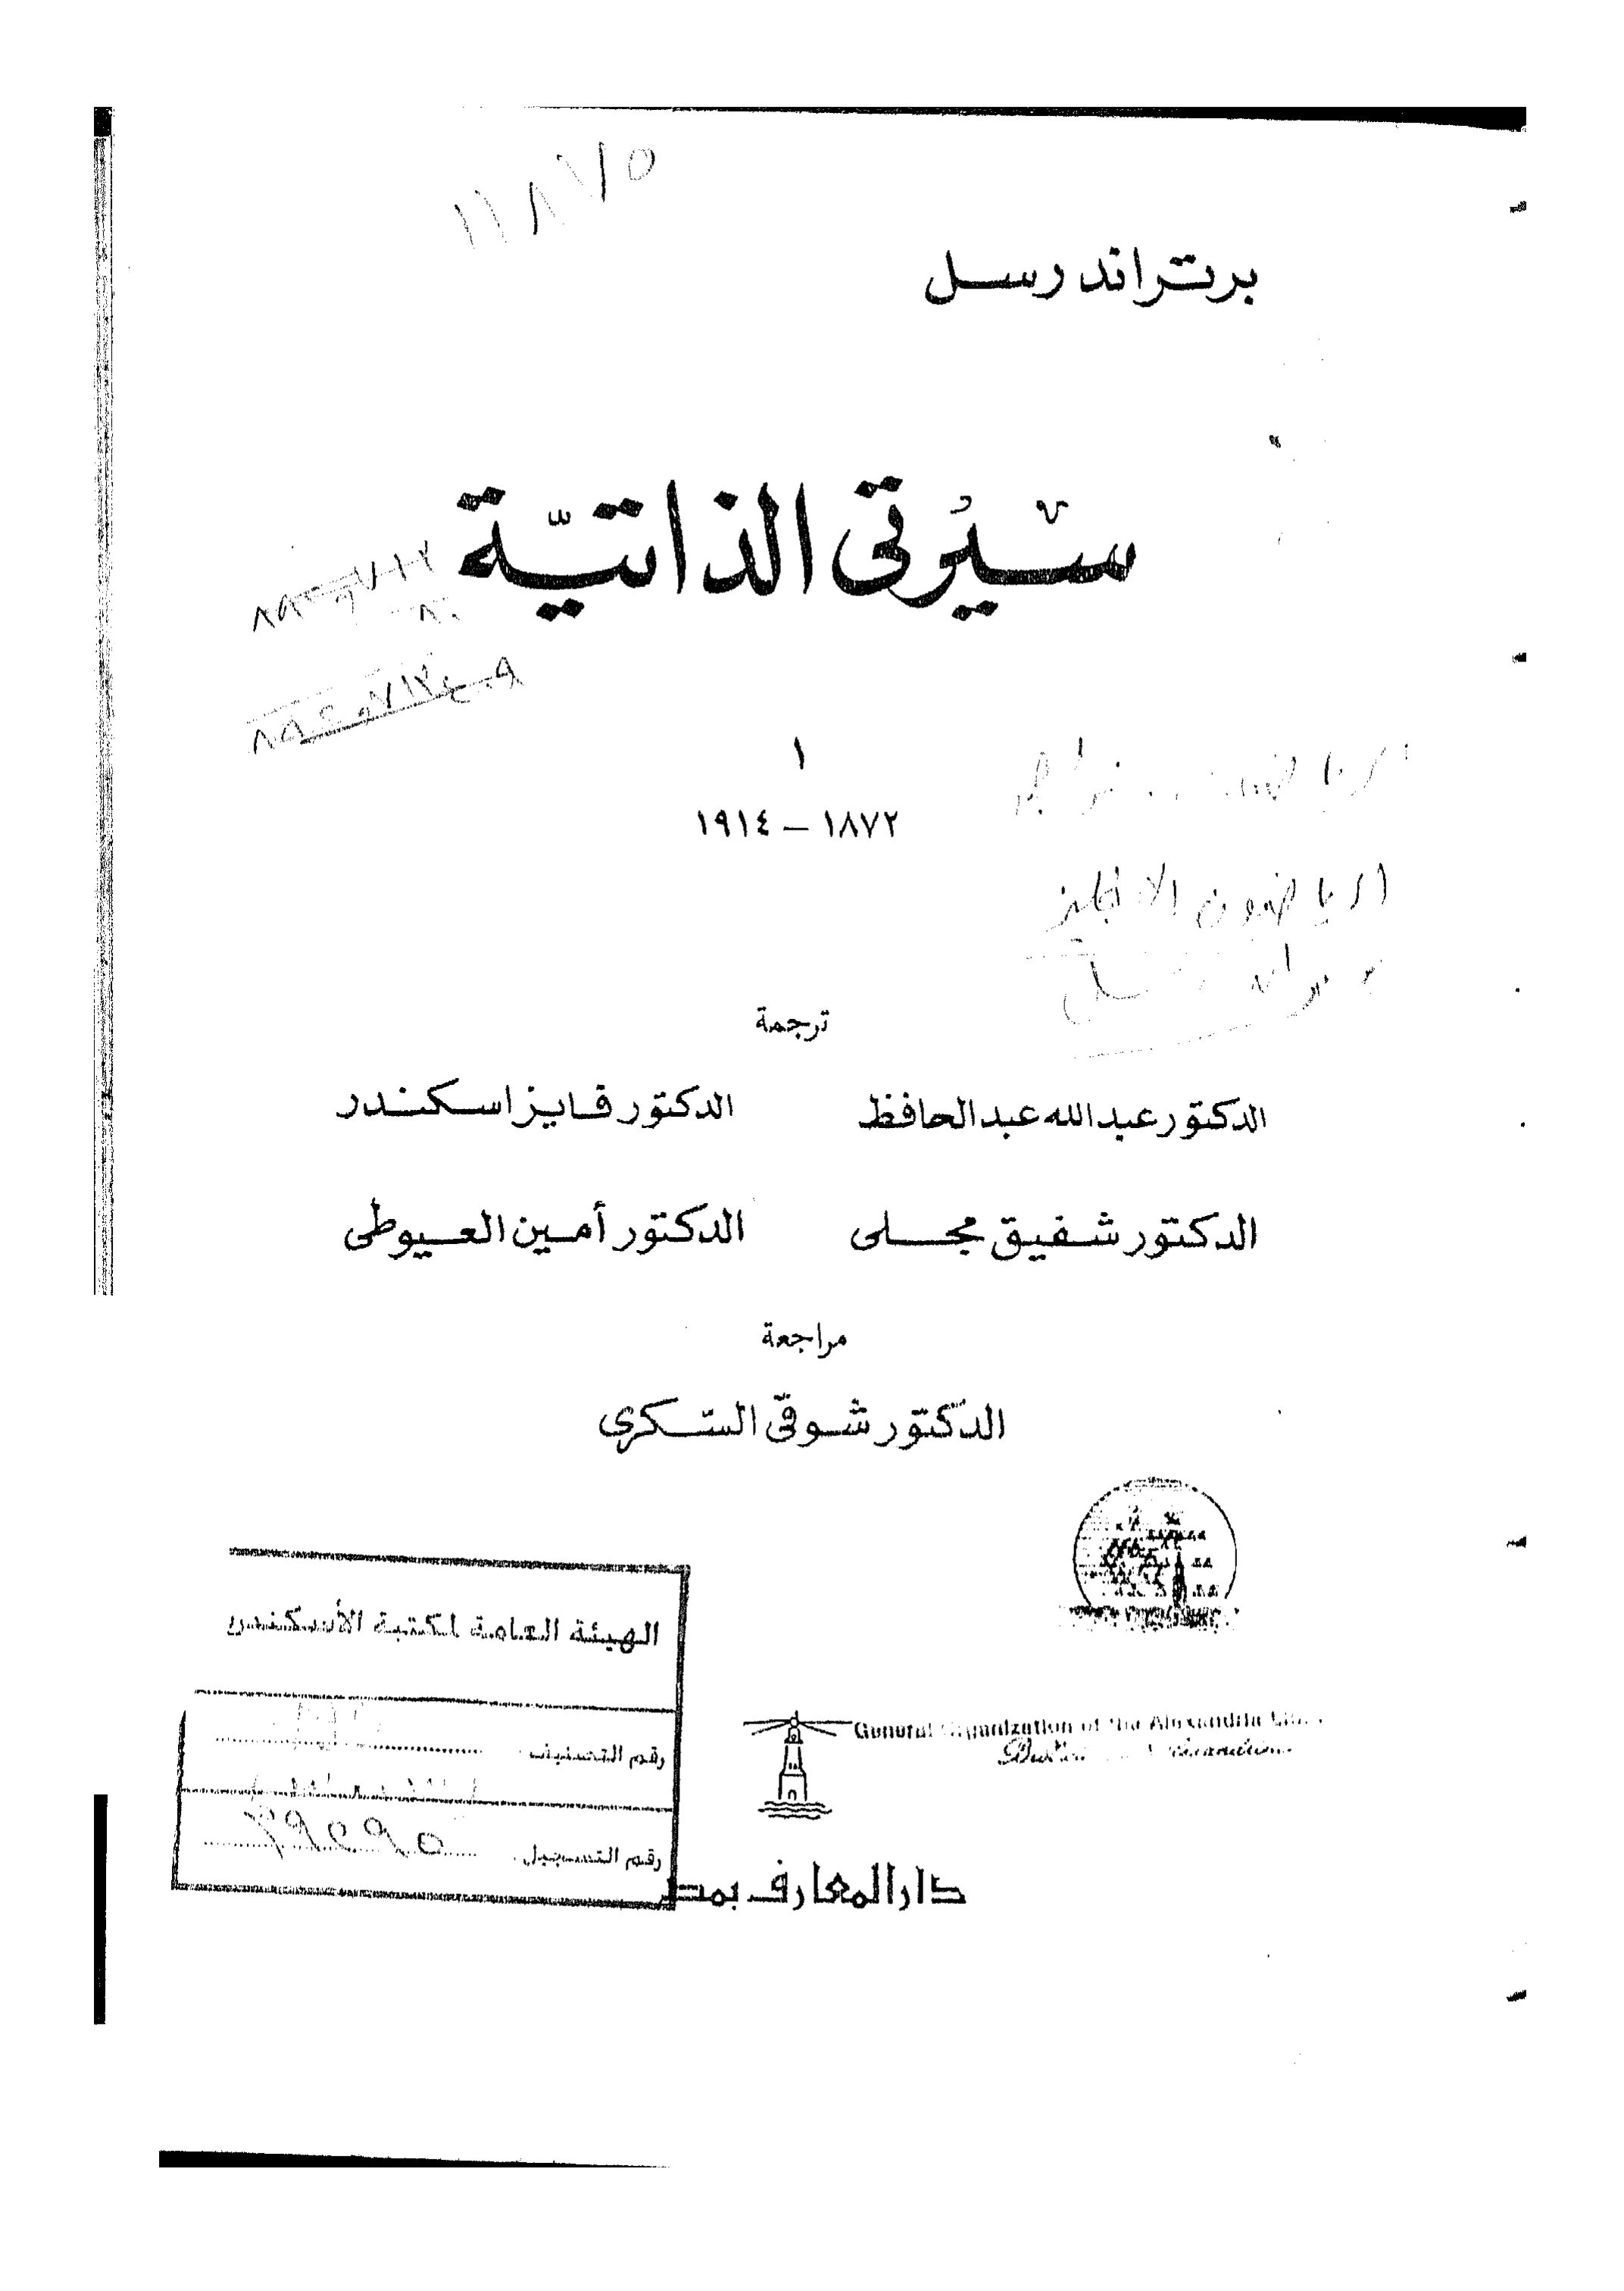 ١١٨٧٥
برتراند رسل
سيرتى الذاتيّة
١
١٨٧٢ – ١٩١٤
الرياضيون الانجليز
ترجمة
الدكتور عبد الله عبد الحافظ    الدكتور فايز اسكندر
الدكتور شفيق مجلى    الدكتور أمين العيوطى
مراجعة
الدكتور شوقى السّكرى
الهيئة العامة لكتبة الأسكندر
رقم التصنيف
رقم التسجيل
General Organization of the Alexandria
دار المعارف بمصر